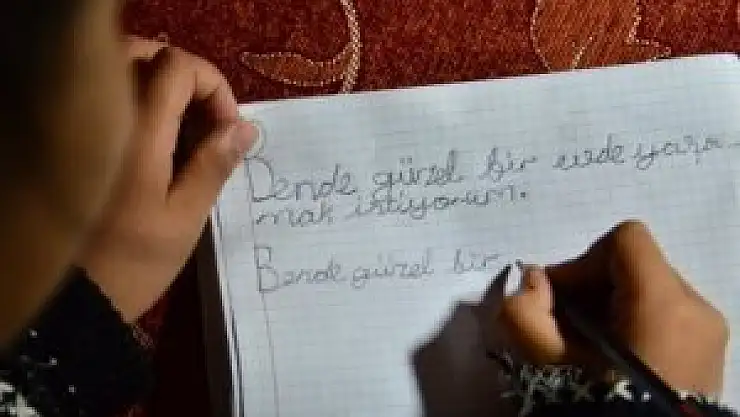 Bende güzel bir evde yaşa-
mak istiyorum.
Bende güzel bir